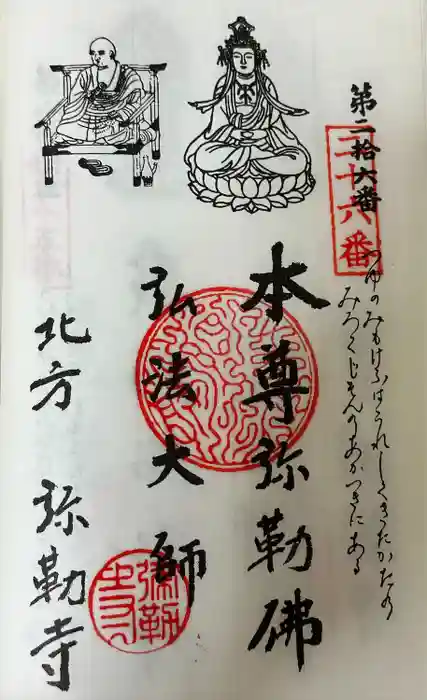 第二拾六番
二十六番
つゆのみもけふはうれしくきたかたの
みろくじそんのあかつきにある
本尊弥勒佛
弘法大師
北方 弥勒寺
弥勒寺